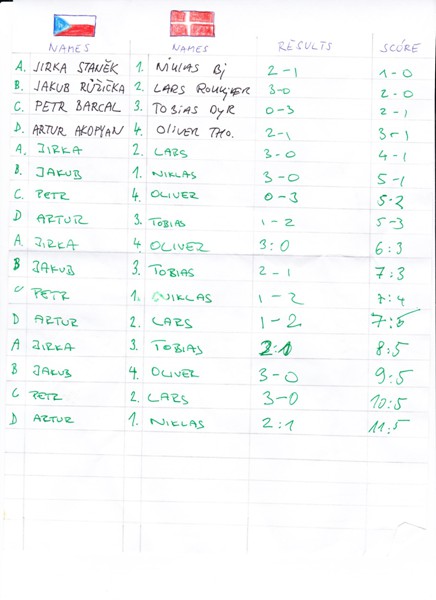 NAMES NAMES RESULTS SCÓRE
A. JIRKA STANĚK 1. NIKLAS Bj 2-1 1-0
B. JAKUB RŮŽIČKA 2. LARS 3-0 2-0
C. PETR BARCAL 3. TOBIAS DYR 0-3 2-1
D. ARTUR AKOPYAN 4. OLIVER THO. 2-1 3-1
A. JIRKA 2. LARS 3-0 4-1
B. JAKUB 1. NIKLAS 3-0 5-1
C. PETR 4. OLIVER 0-3 5-2
D ARTUR 3. TOBIAS 1-2 5-3
A. JIRKA 4 OLIVER 3:0 6:3
B JAKUB 3. TOBIAS 2-1 7:3
C PETR 1. NIKLAS 1-2 7:4
D ARTUR 2. LARS 1-2 7:5
A JIRKA 3. TOBIAS 2:1 8:5
B JAKUB 4. OLIVER 3-0 9:5
C PETR 2. LARS 3-0 10:5
D ARTUR 1. NIKLAS 2:1 11:5